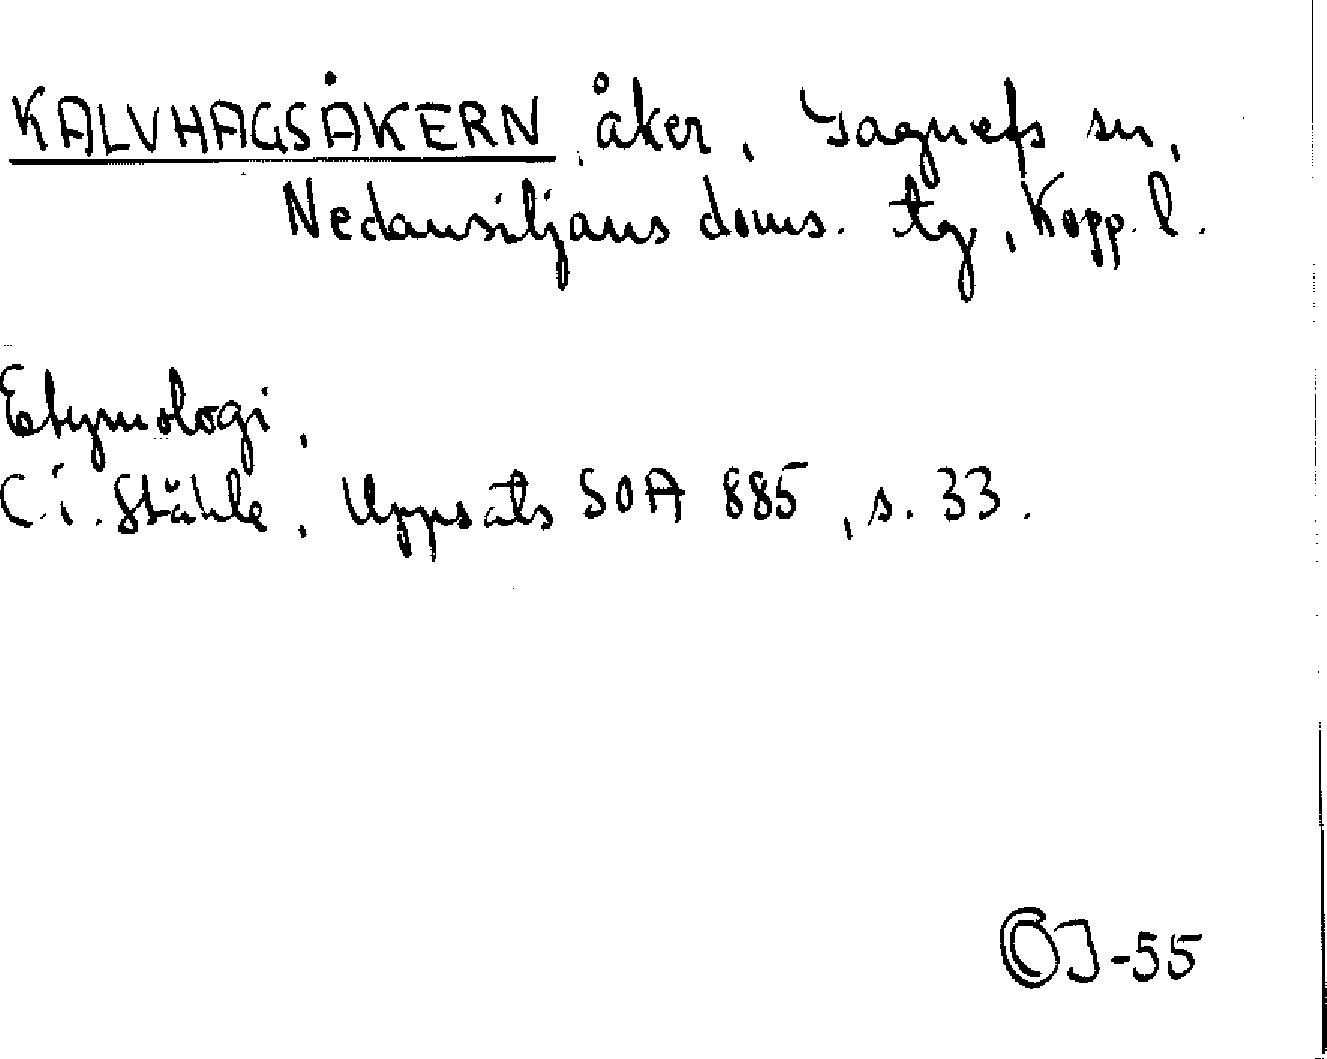 KALVHAGSÅKERN, åker, Gagnefs sn,
Nedansiljans doms. tg, Kopp. l.
Etymologi.
C. I. Ståhle, Uppsats SOA 885, s. 33.
OJ-55